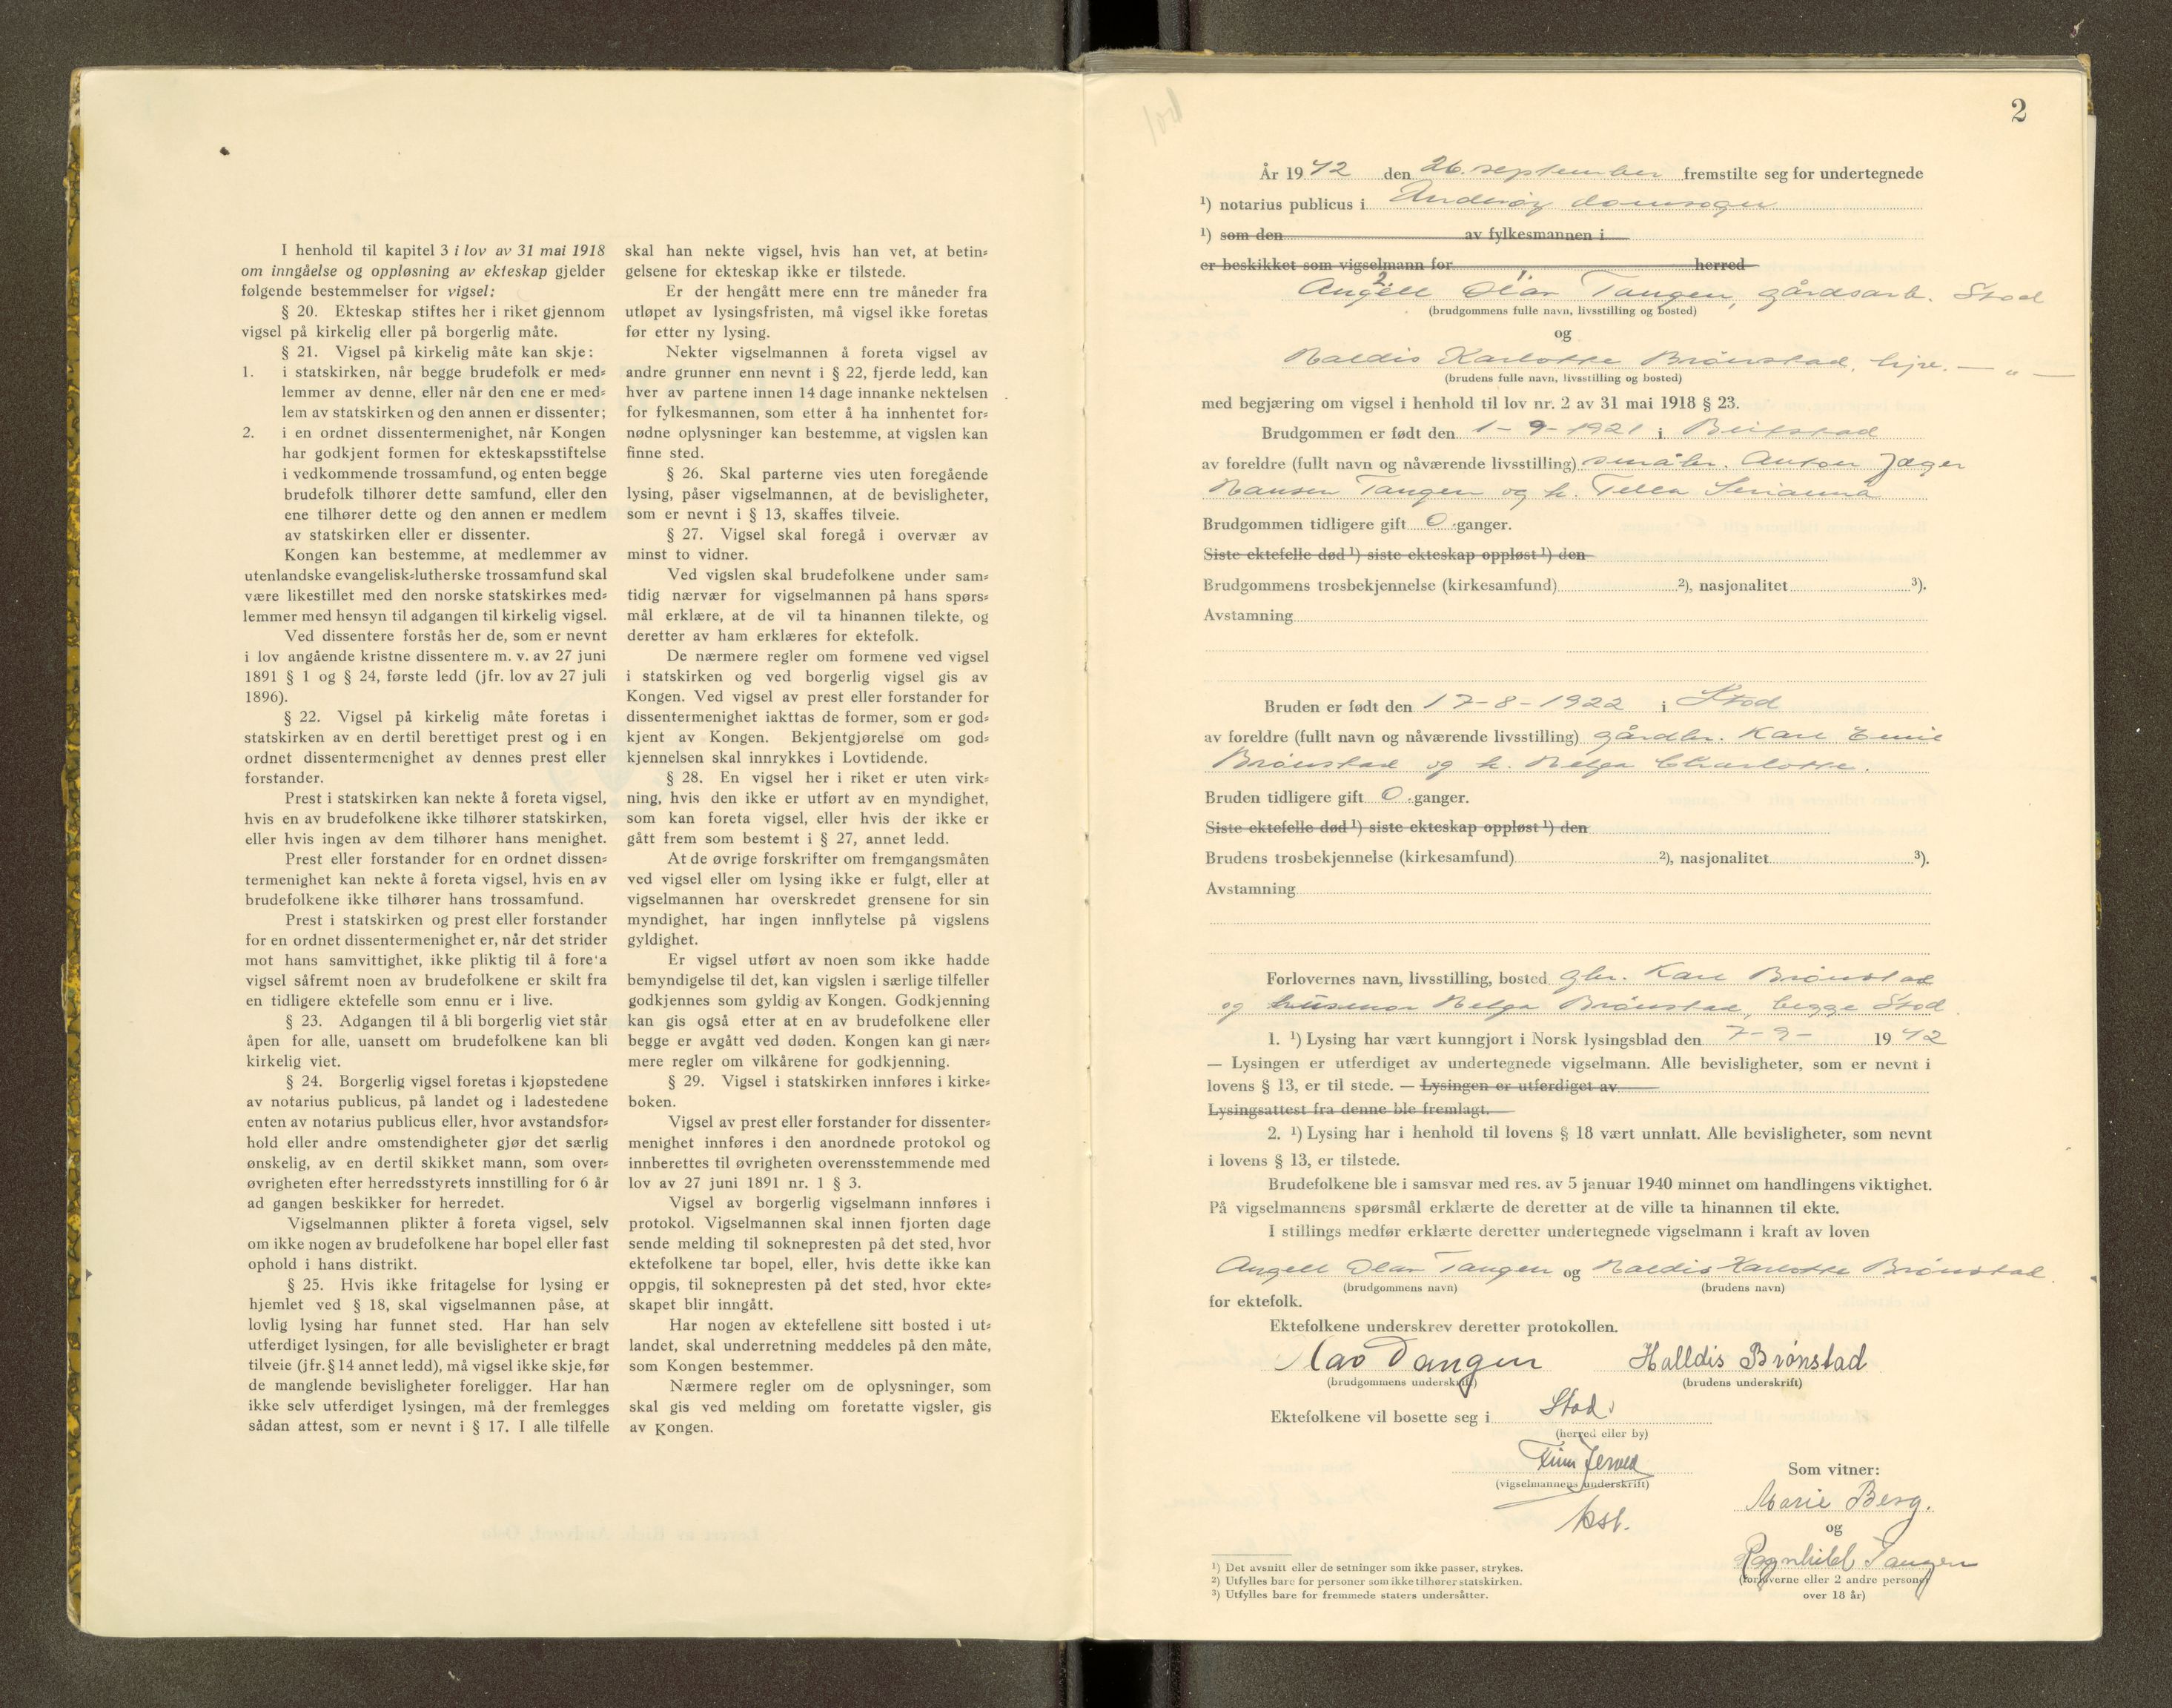 I henhold til kapitel 3 i lov av 31 mai 1918
om inngåelse og oppløsning av ekteskap gjelder
følgende bestemmelser for vigsel:
§ 20. Ekteskap stiftes her i riket gjennom
vigsel på kirkelig eller på borgerlig måte.
§ 21. Vigsel på kirkelig måte kan skje:
1. i statskirken, når begge brudefolk er med-
lemmer av denne, eller når den ene er med-
lem av statskirken og den annen er dissenter;
2. i en ordnet dissentermenighet, når Kongen
har godkjent formen for ekteskapsstiftelse
i vedkommende trossamfund, og enten begge
brudefolk tilhører dette samfund, eller den
ene tilhører dette og den annen er medlem
av statskirken eller er dissenter.
Kongen kan bestemme, at medlemmer av
utenlandske evangelisk-lutherske trossamfund skal
være likestillet med den norske statskirkes med-
lemmer med hensyn til adgangen til kirkelig vigsel.
Ved dissentere forstås her de, som er nevnt
i lov angående kristne dissentere m. v. av 27 juni
1891 § 1 og § 24, første ledd (jfr. lov av 27 juli
1896).
§ 22. Vigsel på kirkelig måte foretas i
statskirken av en dertil berettiget prest og i en
ordnet dissentermenighet av dennes prest eller
forstander.
Prest i statskirken kan nekte å foreta vigsel,
hvis en av brudefolkene ikke tilhører statskirken,
eller hvis ingen av dem tilhører hans menighet.
Prest eller forstander for en ordnet dissen-
termenighet kan nekte å foreta vigsel, hvis en av
brudefolkene ikke tilhører hans trossamfund.
Prest i statskirken og prest eller forstander
for en ordnet dissentermenighet er, når det strider
mot hans samvittighet, ikke pliktig til å fore'a
vigsel såfremt noen av brudefolkene er skilt fra
en tidligere ektefelle som ennu er i live.
§ 23. Adgangen til å bli borgerlig viet står
åpen for alle, uansett om brudefolkene kan bli
kirkelig viet.
§ 24. Borgerlig vigsel foretas i kjøpstedene
av notarius publicus, på landet og i ladestedene
enten av notarius publicus eller, hvor avstandsfor-
hold eller andre omstendigheter gjør det særlig
ønskelig, av en dertil skikket mann, som over-
øvrigheten efter herredsstyrets innstilling for 6 år
ad gangen beskikker for herredet.
Vigselmannen plikter å foreta vigsel, selv
om ikke nogen av brudefolkene har bopel eller fast
ophold i hans distrikt.
§ 25. Hvis ikke fritagelse for lysing er
hjemlet ved § 18, skal vigselmannen påse, at
lovlig lysing har funnet sted. Har han selv
utferdiget lysingen, før alle bevisligheter er bragt
tilveie (jfr. § 14 annet ledd), må vigsel ikke skje, før
de manglende bevisligheter foreligger. Har han
ikke selv utferdiget lysingen, må der fremlegges
sådan attest, som er nevnt i § 17. I alle tilfelle
skal han nekte vigsel, hvis han vet, at betin-
gelsene for ekteskap ikke er tilstede.
Er der hengått mere enn tre måneder fra
utløpet av lysingsfristen, må vigsel ikke foretas
før etter ny lysing.
Nekter vigselmannen å foreta vigsel av
andre grunner enn nevnt i § 22, fjerde ledd, kan
hver av partene innen 14 dage innanke nektelsen
for fylkesmannen, som etter å ha innhentet for-
nødne oplysninger kan bestemme, at vigslen kan
finne sted.
§ 26. Skal parterne vies uten foregående
lysing, påser vigselmannen, at de bevisligheter,
som er nevnt i § 13, skaffes tilveie.
§ 27. Vigsel skal foregå i overvær av
minst to vidner.
Ved vigslen skal brudefolkene under sam-
tidig nærvær for vigselmannen på hans spørs-
mål erklære, at de vil ta hinannen tilekte, og
deretter av ham erklæres for ektefolk.
De nærmere regler om formene ved vigsel
i statskirken og ved borgerlig vigsel gis av
Kongen. Ved vigsel av prest eller forstander for
dissentermenighet iakttas de former, som er god-
kjent av Kongen. Bekjentgjørelse om god-
kjennelsen skal innrykkes i Lovtidende.
§ 28. En vigsel her i riket er uten virk-
ning, hvis den ikke er utført av en myndighet,
som kan foreta vigsel, eller hvis der ikke er
gått frem som bestemt i § 27, annet ledd.
At de øvrige forskrifter om fremgangsmåten
ved vigsel eller om lysing ikke er fulgt, eller at
vigselmannen har overskredet grensene for sin
myndighet, har ingen innflytelse på vigslens
gyldighet.
Er vigsel utført av noen som ikke hadde
bemyndigelse til det, kan vigslen i særlige tilfeller
godkjennes som gyldig av Kongen. Godkjenning
kan gis også etter at en av brudefolkene eller
begge er avgått ved døden. Kongen kan gi nær-
mere regler om vilkårene for godkjenning.
§ 29. Vigsel i statskirken innføres i kirke-
boken.
Vigsel av prest eller forstander for dissenter-
menighet innføres i den anordnede protokol og
innberettes til øvrigheten overensstemmende med
lov av 27 juni 1891 nr. 1 § 3.
Vigsel av borgerlig vigselmann innføres i
protokol. Vigselmannen skal innen fjorten dage
sende melding til soknepresten på det sted, hvor
ektefolkene tar bopel, eller, hvis dette ikke kan
oppgis, til soknepresten på det sted, hvor ekte-
skapet blir inngått.
Har nogen av ektefellene sitt bosted i ut-
landet, skal underretning meddeles på den måte,
som Kongen bestemmer.
Nærmere regler om de oplysninger, som
skal gis ved melding om foretatte vigsler, gis
av Kongen.
2
År 1942 den 26. september fremstilte seg for undertegnede
¹) notarius publicus i Inderøy domsogn
¹) som den av fylkesmannen i
er beskikket som vigselmann for herred
2. 1.
Angell Olav Tangen, gårdsarb. Stod
(brudgommens fulle navn, livsstilling og bosted)
og
Haldis Karlotte Brønstad, hjv. — " —
(brudens fulle navn, livsstilling og bosted)
med begjæring om vigsel i henhold til lov nr. 2 av 31 mai 1918 § 23.
Brudgommen er født den 1-9-1921 i Beitstad
av foreldre (fullt navn og nåværende livsstilling) småbr. Anton Jæger
Hansen Tangen og h. Tella Serianna
Brudgommen tidligere gift 0 ganger.
Siste ektefelle død ¹) siste ekteskap oppløst ¹) den
Brudgommens trosbekjennelse (kirkesamfund) ²), nasjonalitet ³).
Avstamning
Bruden er født den 17-8-1922 i Stod
av foreldre (fullt navn og nåværende livsstilling) gårdbr. Karl Emil
Brønstad og h. Helga Charlotte.
Bruden tidligere gift 0 ganger.
Siste ektefelle død ¹) siste ekteskap oppløst ¹) den
Brudens trosbekjennelse (kirkesamfund) ²), nasjonalitet ³).
Avstamning
Forlovernes navn, livsstilling, bosted gbr. Karl Brønstad
og husmor Helga Brønstad, begge Stod
1. ¹) Lysing har vært kunngjort i Norsk lysingsblad den 7-9- 1942
— Lysingen er utferdiget av undertegnede vigselmann. Alle bevisligheter, som er nevnt i
lovens § 13, er til stede. — Lysingen er utferdiget av
Lysingsattest fra denne ble fremlagt.
2. ¹) Lysing har i henhold til lovens § 18 vært unnlatt. Alle bevisligheter, som nevnt
i lovens § 13, er tilstede.
Brudefolkene ble i samsvar med res. av 5 januar 1940 minnet om handlingens viktighet.
På vigselmannens spørsmål erklærte de deretter at de ville ta hinannen til ekte.
I stillings medfør erklærte deretter undertegnede vigselmann i kraft av loven
Angell Olav Tangen og Haldis Karlotte Brønstad
(brudgommens navn) (brudens navn)
for ektefolk.
Ektefolkene underskrev deretter protokollen.
Olav Tangen Halldis Brønstad
(brudgommens underskrift) (brudens underskrift)
Ektefolkene vil bosette seg i Stod
(herred eller by)
Finn
(vigselmannens underskrift)
Som vitner:
Marie Berg.
og
Ragnhild Tangen
(forloverne eller 2 andre personer
over 18 år)
¹) Det avsnitt eller de setninger som ikke passer, strykes.
²) Utfylles bare for personer som ikke tilhører statskirken.
³) Utfylles bare for fremmede staters undersåtter.